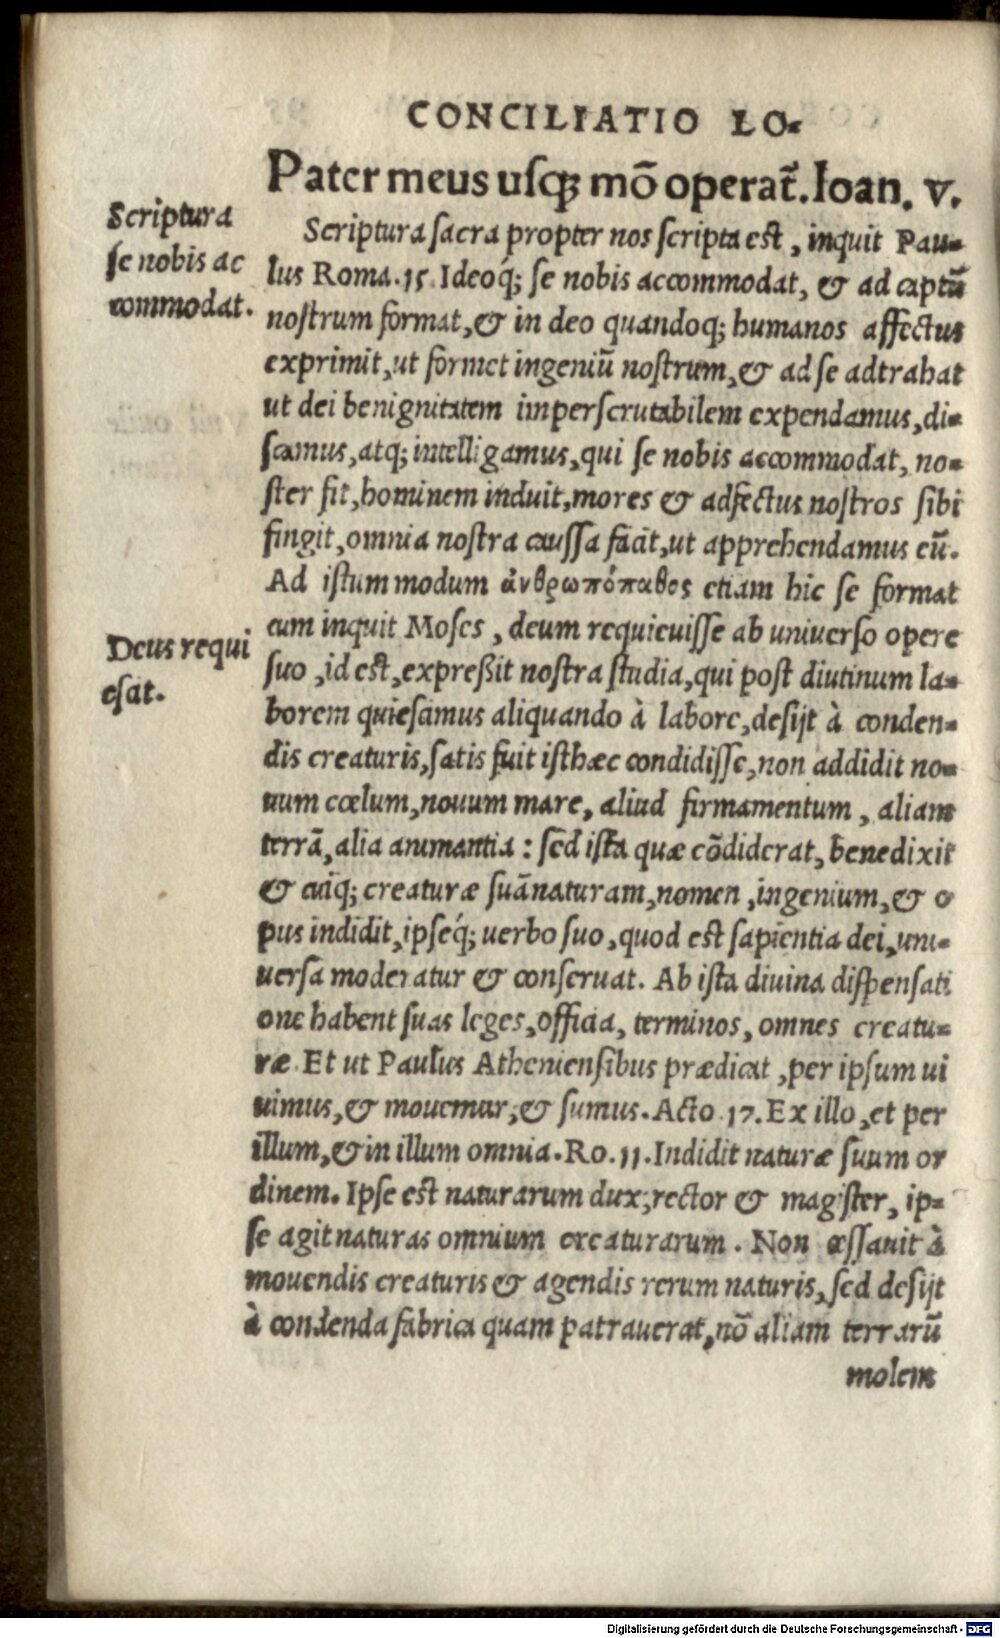 CONCILIATIO LO-
Pater meus usq; mõ operat̃. Ioan. v.
Scriptura
se nobis ac
commodat.
Scriptura sacra propter nos scripta est, inquit Pau-
lus Roma. 15. Ideoq́; se nobis accommodat, & ad captũ
nostrum format, & in deo quandoq; humanos affectus
exprimit, ut formet ingeniũ nostrum, & ad se adtrahat
ut dei benignitatem imperscrutabilem expendamus, di-
scamus, atq; intelligamus, qui se nobis accommodat, no-
ster fit, hominem induit, mores & adfectus nostros sibi
fingit, omnia nostra caussa facit, ut apprehendamus eũ.
Ad istum modum ἀνθρωπόπαθος etiam hic se format
cum inquit Moses, deum requieuisse ab uniuerso opere
Deus requi
escit.
suo, id est, expreßit nostra studia, qui post diutinum la-
borem quiescimus aliquando à labore, desijt à conden-
dis creaturis, satis fuit isthæc condidisse, non addidit no-
uum cœlum, nouum mare, aliud firmamentum, aliam
terrã, alia animantia: sed ista quæ cõdiderat, benedixit
& cuiq; creaturæ suã naturam, nomen, ingenium, & o
pus indidit, ipseq́; uerbo suo, quod est sapientia dei, uni-
uersa moderatur & conseruat. Ab ista diuina dispensati
one habent suas leges, officia, terminos, omnes creatu-
ræ. Et ut Paulus Atheniensibus prædicat, per ipsum ui
uimus, & mouemur, & sumus. Acto. 17. Ex illo, et per
illum, & in illum omnia. Ro. 11. Indidit naturæ suum or
dinem. Ipse est naturarum dux, rector & magister, ip-
se agit naturas omnium creaturarum. Non cessauit à
mouendis creaturis & agendis rerum naturis, sed desijt
à condenda fabrica quam patrauerat, nõ aliam terrarũ
molem
Digitalisierung gefördert durch die Deutsche Forschungsgemeinschaft - DFG